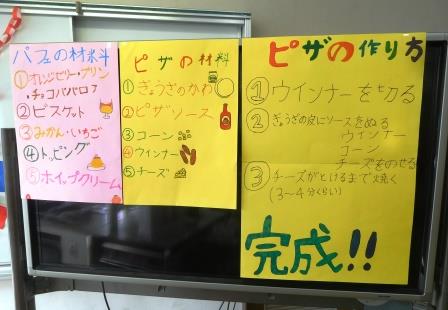 パフェの材料
①オレンジゼリー・プリン
・チョコババロア
②ビスケット
③みかん・いちご
④トッピング
⑤ホイップクリーム
ピザの材料
①ぎょうざのかわ
②ピザソース
③コーン
④ウインナー
⑤チーズ
ピザの作り方
①ウインナーを切る
②ぎょうざの皮にソースをぬる
ウインナー
コーン
チーズをのせる
③チーズがとけるまで焼く
(3〜4分くらい)
完成!!